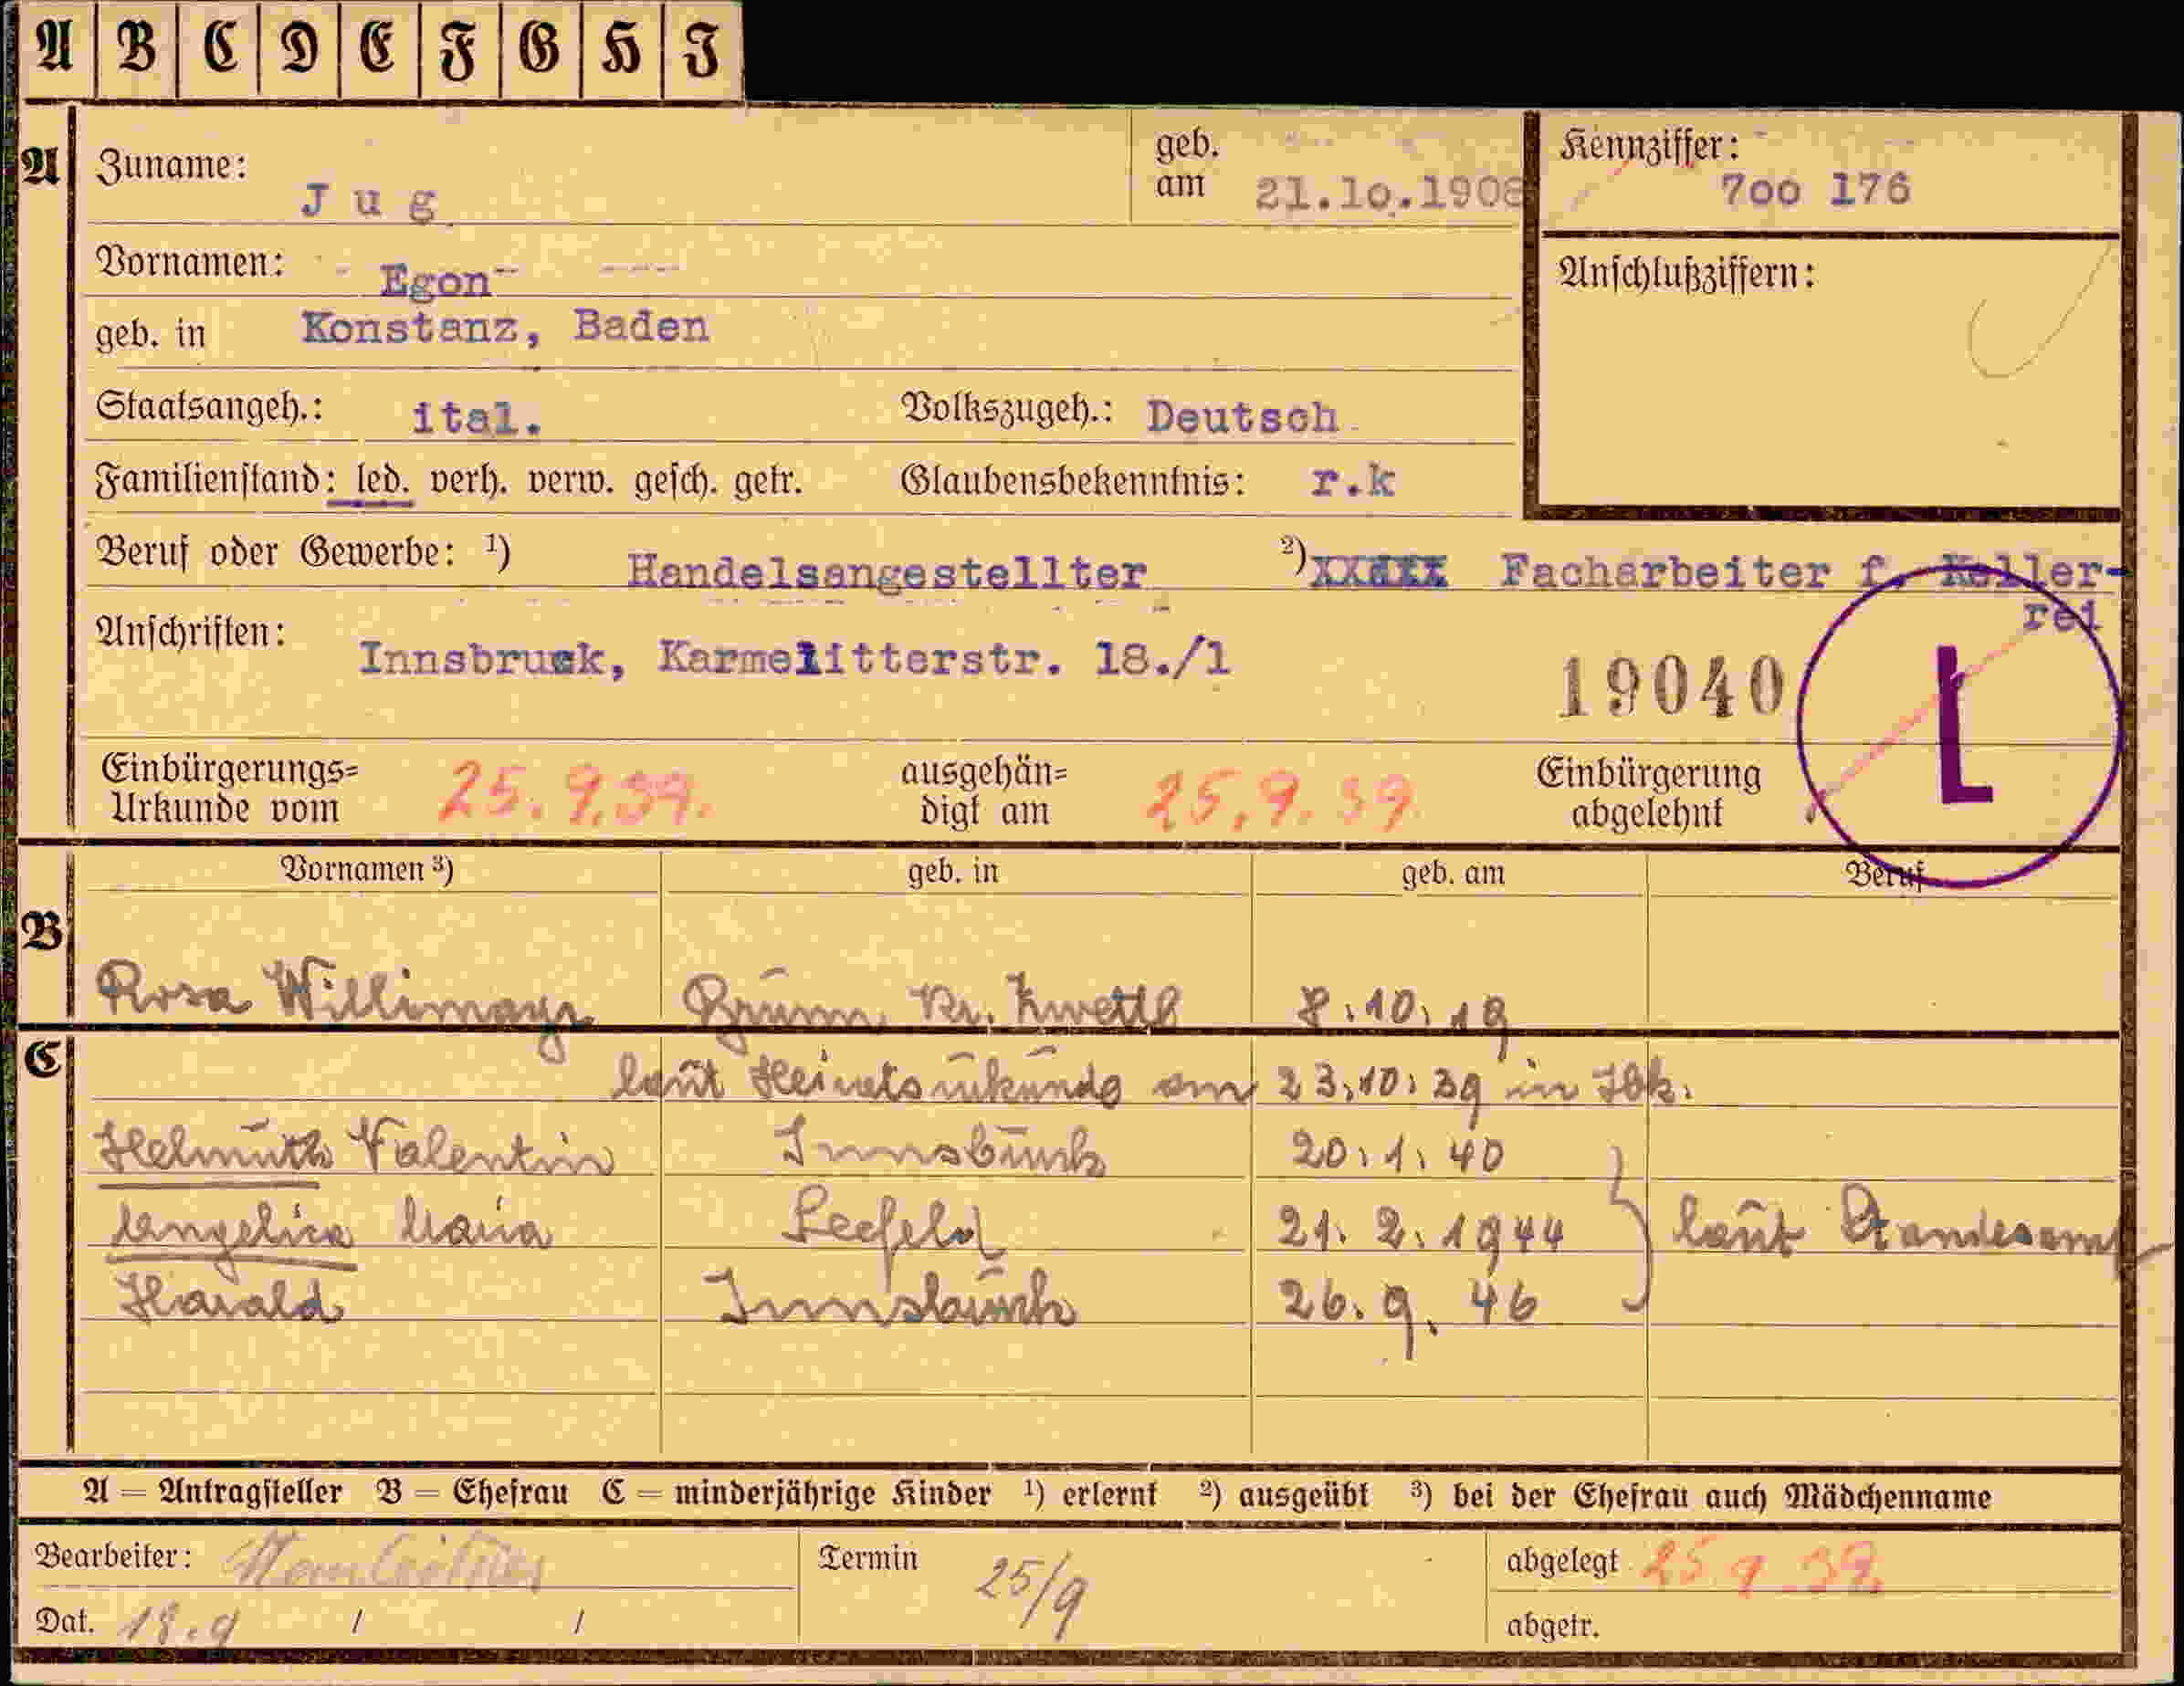 A B C D E F G H I
A Zuname: Jug geb. am 21.10.1908 Kennziffer: 700 176
Vornamen: Egon Anschlußziffern:
geb. in Konstanz, Baden
Staatsangeh.: ital. Volkszugeh.: Deutsch
Familienstand: led. verh. verw. gesch. getr. Glaubensbekenntnis: r.k
Beruf oder Gewerbe: 1) Handelsangestellter 2) Facharbeiter f. Keller-
rei
Anschriften: Innsbruck, Karmelitterstr. 18./1
19040 L
Einbürgerungs= Urkunde vom 25.9.39. ausgehän= digt am 25.9.39 Einbürgerung abgelehnt
Vornamen 3) geb. in geb. am Beruf
B
Rosa Willimayr Brunn Kr. Zwettl 8.10.19
C
laut Heiratsurkunde am 23.10.39 in Ibk.
Helmuth Valentin Innsbruck 20.1.40
Angelica Maria Seefeld 21.2.1944 laut Standesamt
Harald Innsbruck 26.9.46
A — Antragsteller B — Ehefrau C — minderjährige Kinder 1) erlernt 2) ausgeübt 3) bei der Ehefrau auch Mädchenname
Bearbeiter: Termin 25/9 abgelegt 25.9.39.
Dat. 18.9 / / abgetr.